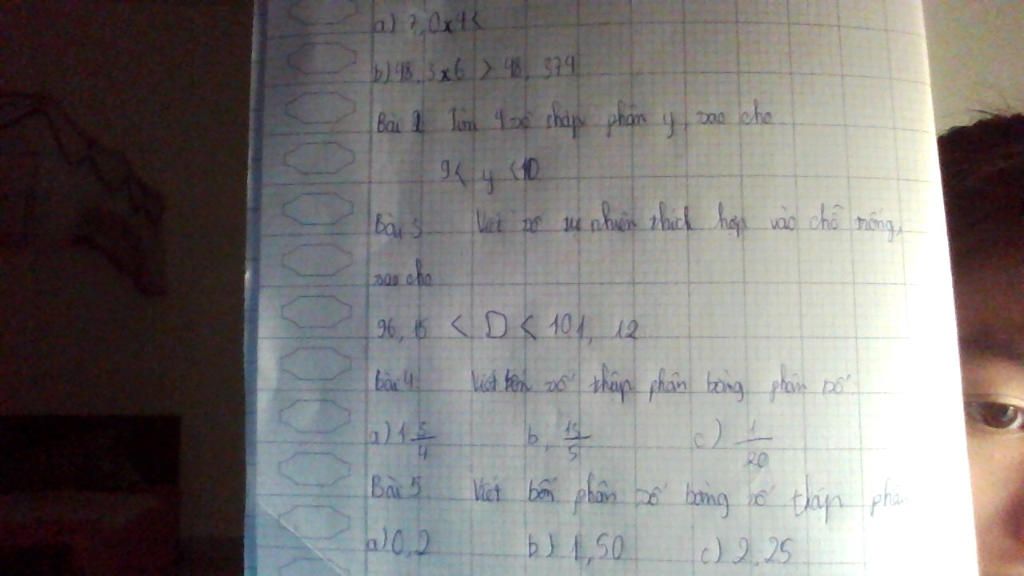 a) 7, 0x4 <
b) 48, 3x6 > 48, 374
Bài 2 Tìm 4 số thập phân y, sao cho
9 < y < 10
Bài 3 Viết số tự nhiên thích hợp vào chỗ trống,
sao cho
96, 15 < □ < 101, 12
Bài 4 Viết số thập phân bằng phân số
a) 1 5/4 b, 15/5 c) 1/20
Bài 5 Viết bốn phân số bằng số thập phân
a) 0, 2 b) 1, 50 c) 2, 25